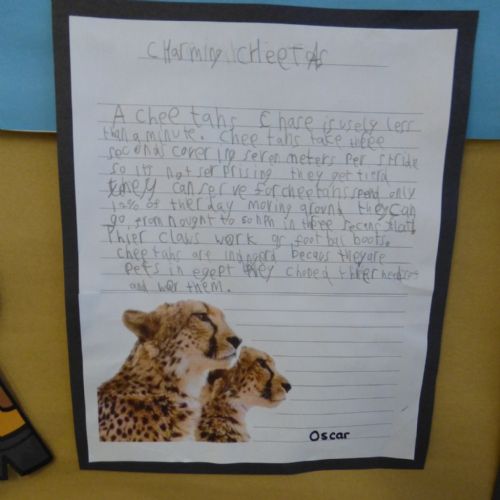 CHarming CHEETAs
A chee tahs chase is usely less
than a minute. Chee tahs take
second covering seven meters per stride
so its not serprising they get tierd
they can serve for cheetahs spend only
12% of ther day moving around they can
go from nought to 60 mph in three seconds
Thier claws work as footbal boots.
cheetahs are becaus they are
Pets in egept they choped heads
and them.
Oscar